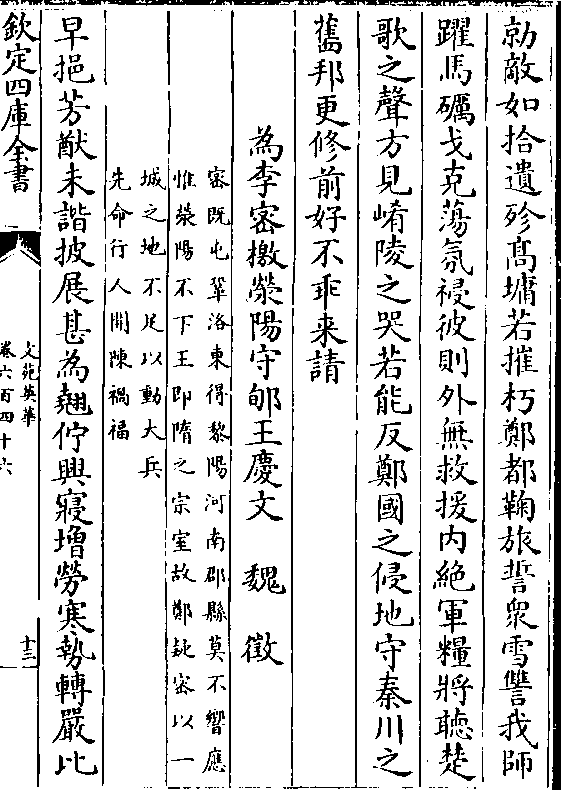 勍敵如拾遺殄髙墉若摧朽鄭都鞠旅誓衆雪讐我師
躍馬礪戈克蕩氛祲彼則外無救援内絶軍糧將聴楚
歌之聲方見崤陵之哭若能反鄭國之侵地守秦川之
舊邦更修前好不乖来請
為李密檄滎陽守郇王慶文 魏徵
密既屯鞏洛東得黎陽河南郡縣莫不響應
惟滎陽不下王即隋之宗室故鄭
密以一
城之地不足以動大兵
先命行人開陳禍福
早挹芳猷未諧披展甚為翹佇興寢増勞寒勢轉嚴比
欽定四庫全書
文苑英華
卷六百四十六
十三